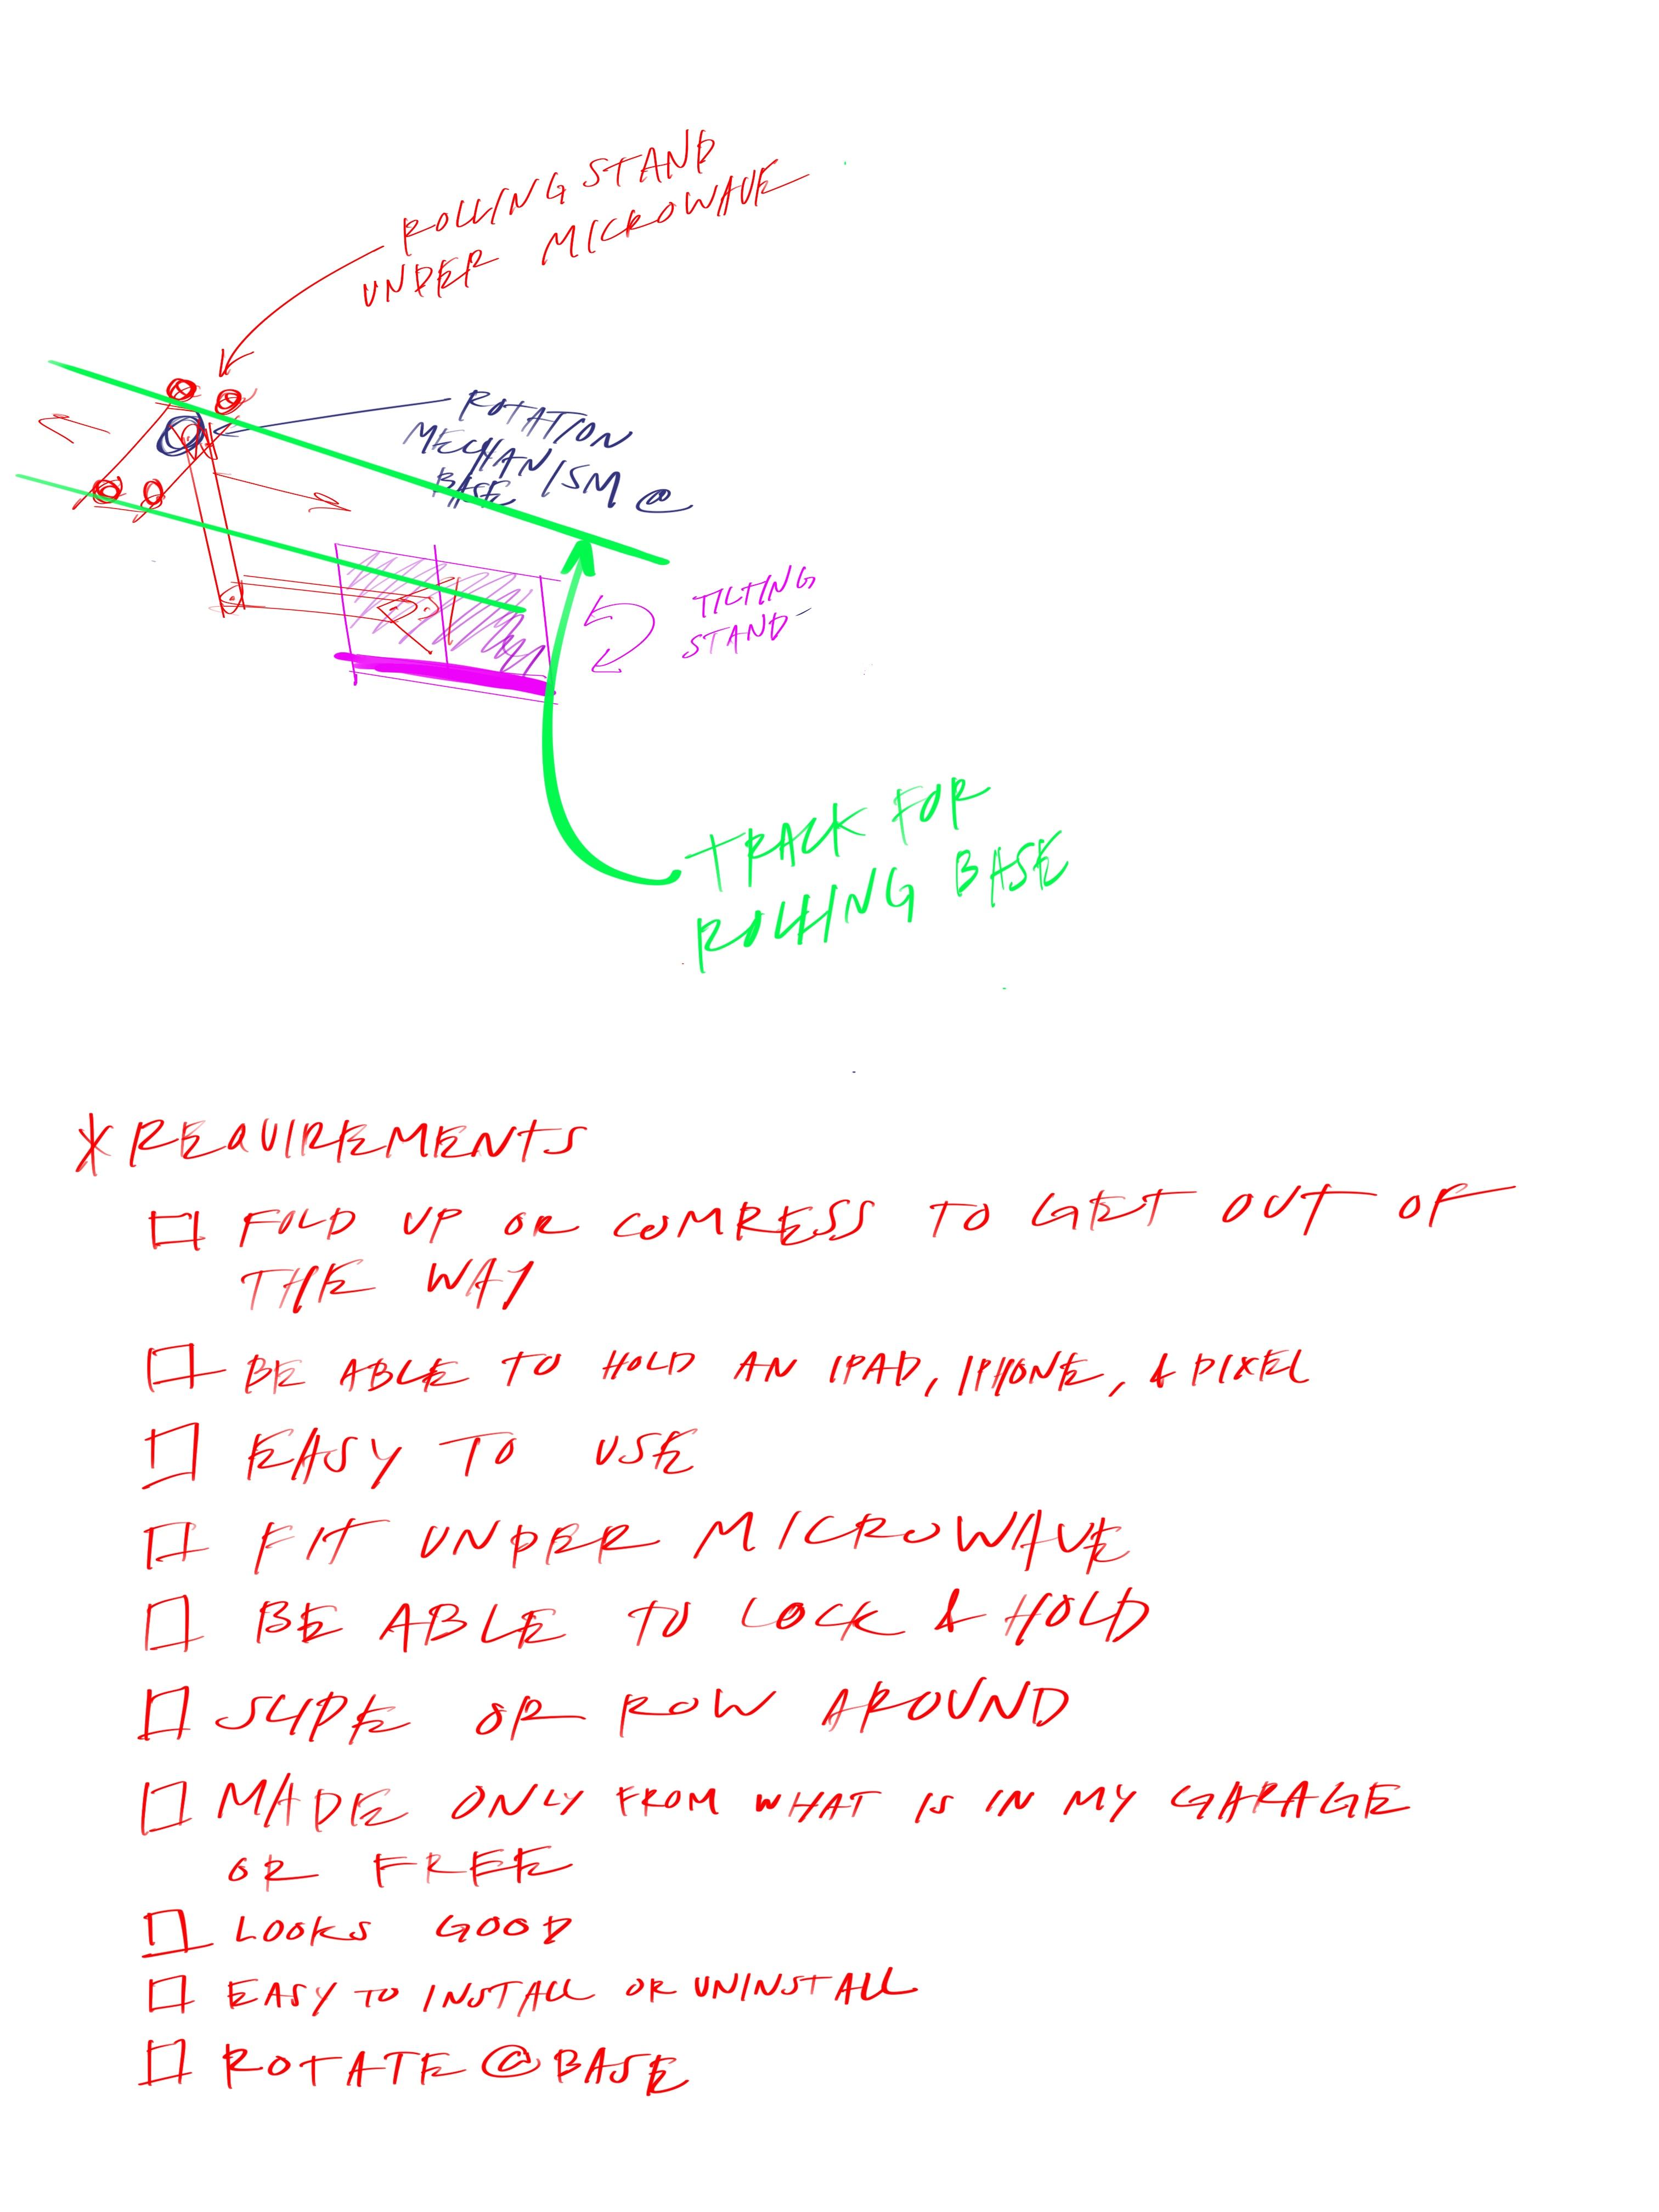 ROLLING STAND
UNDER MICROWAVE
ROTATION
MECHANISM @
BASE
TILTING
STAND
TRACK FOR
ROLLING BASE
* REQUIREMENTS
FOLD UP OR COMRESS TO GET OUT OF
THE WAY
BE ABLE TO HOLD AN IPAD, IPHONE, & PIXEL
EASY TO USE
FIT UNDER MICROWAVE
BE ABLE TO LOCK & HOLD
SLIDE OR ROW AROUND
MADE ONLY FROM WHAT IS IN MY GARAGE
OR FREE
LOOKS GOOD
EASY TO INSTALL OR UNINSTALL
ROTATE @ BASE